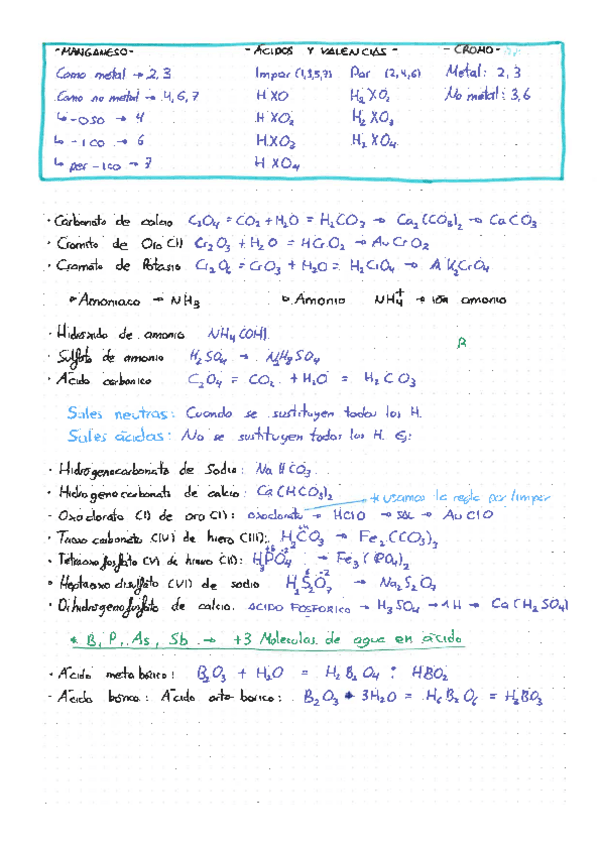 -MANGANESO- -ÁCIDOS Y VALENCIAS- -CROMO-
Como metal → 2,3 Impar (1,3,5,7) Par (2,4,6) Metal: 2, 3
Como no metal → 4, 6, 7 HXO H₂XO₂ No metal: 3,6
↳ -oso → 4 HXO₂ H₂XO₃
↳ -ico → 6 HXO₃ H₂XO₄
↳ per-ico → 7 HXO₄
· Carbonato de calcio C₂O₄ = CO₂ + H₂O = H₂CO₃ → Ca₂(CO₃)₂ → CaCO₃
· Cromito de Oro (I) Cr₂O₃ + H₂O = HCrO₂ → AuCrO₂
· Cromato de Potasio Cr₂O₆ = CrO₃ + H₂O = H₂CrO₄ → K₂CrO₄
Amoniaco → NH₃ Amonio NH₄⁺ → ión amonio
· Hidróxido de amonio NH₄(OH).
· Sulfato de amonio H₂SO₄ →
· Ácido carbónico C₂O₄ = CO₂ + H₂O = H₂CO₃
Sales neutras: Cuando se sustituyen todos los H.
Sales ácidas: No se sustituyen todos los H. Ej:
· Hidrogenocarbonato de Sodio: NaHCO₃
· Hidrogenocarbonato de calcio: Ca(HCO₃)₂ * usamos la regla por
- Oxoclorato (I) de oro (I): oxoclorato → HClO → sal → AuClO
· Trioxocarbonato (IV) de hierro (III): H₂CO₃ → Fe₂(CO₃)₃
· Tetraoxofosfato (V) de hierro (II): H₃PO₄ → Fe₃(PO₄)₂
· Heptaoxodisulfato (VI) de sodio H₂S₂O₇ → Na₂S₂O₇
· Dihidrogenofosfato de calcio. ÁCIDO FOSFÓRICO → H₃SO₄ → 1H → Ca(H₂SO₄)
* B, P, As, Sb → +3 Moléculas de agua en ácido
· Ácido metabórico: B₂O₃ + H₂O = H₂B₂O₄ : HBO₂
- Ácido bórico: Ácido ortobórico: B₂O₃ + 3H₂O = H₆B₂O₆ = H₃BO₃